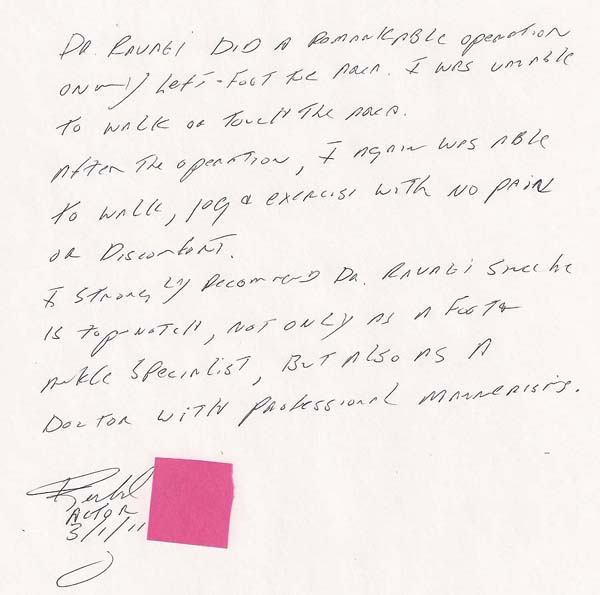 DR. RAVAEI DID A REMARKABLE operation
on my Left-Foot toe AREA. I WAS UNABLE
TO WALK OR TOUCH THE AREA.
AFTER The operation, I Again WAS ABLE
TO WALK, jog & exercise with NO PAIN
OR Discomfort.
I Strongly Recommend DR. RAVAEI Since he
IS TOP-NOTCH, NOT ONLY AS A Foot &
Ankle Specialist, But Also AS A
DOCTOR WITH Professional Mannerisms.
ACTOR
3/1/11